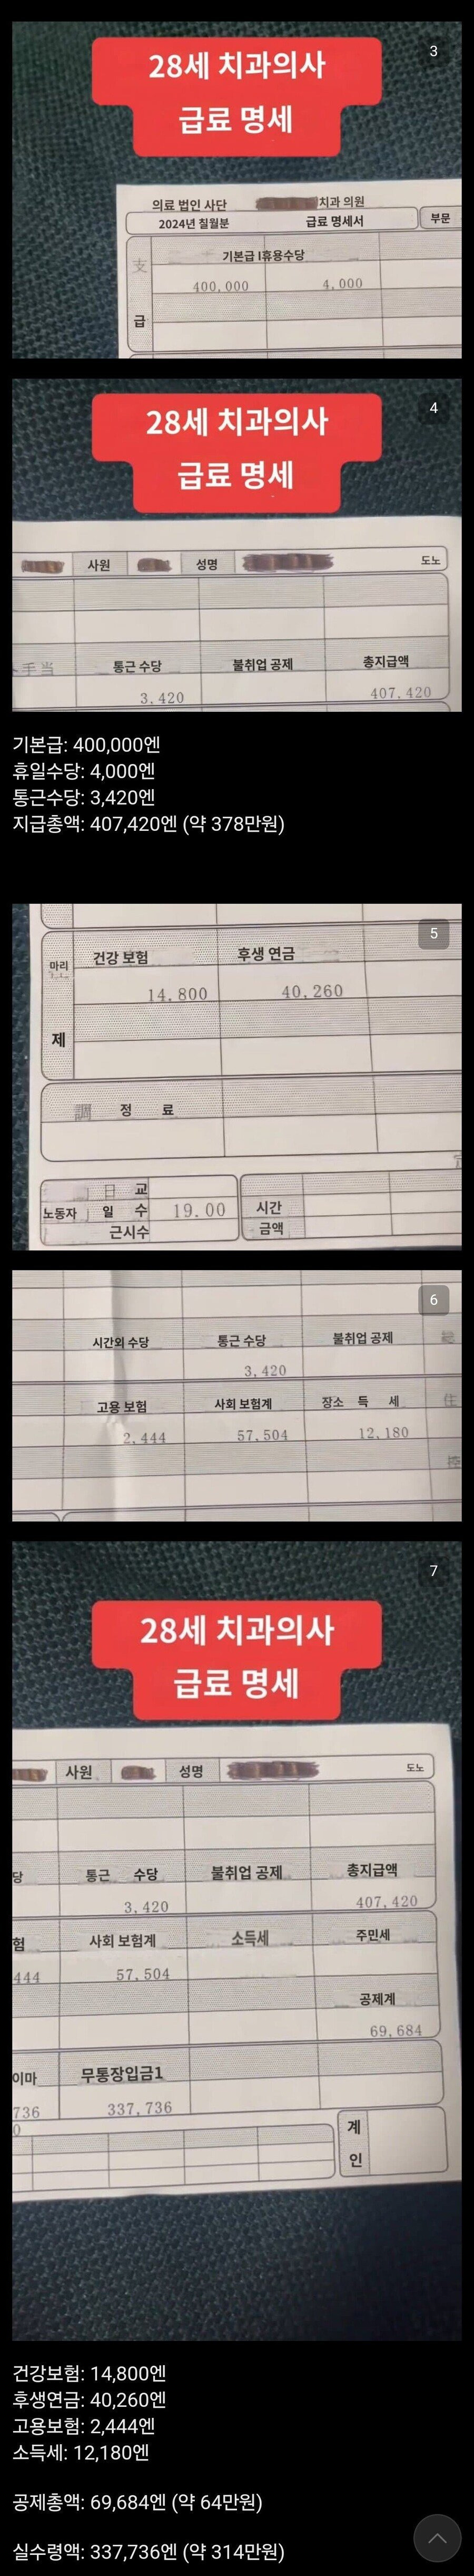 3
28세 치과의사
급료 명세
의료 법인 사단 치과 의원
2024년 칠월분 급료 명세서 부문
支 기본급 I휴용수당
400,000 4,000
급
4
28세 치과의사
급료 명세
사원 성명 도노
手当 통근 수당 불취업 공제 총지급액
3,420 407,420
기본급: 400,000엔
휴일수당: 4,000엔
통근수당: 3,420엔
지급총액: 407,420엔 (약 378만원)
5
마리 건강 보험 후생 연금
14,800 40,260
제
調 정 료
日 교
노동자 일 수 19.00 시간
근시수 금액
6
시간외 수당 통근 수당 불취업 공제
3,420
고용 보험 사회 보험계 장소 득 세 住
2,444 57,504 12,180
控
7
28세 치과의사
급료 명세
사원 성명 도노
당 통근 수당 불취업 공제 총지급액
3,420 407,420
험 사회 보험계 소득세 주민세
444 57,504
공제계
69,684
이마 무통장입금1
736 337,736
0
계
인
건강보험: 14,800엔
후생연금: 40,260엔
고용보험: 2,444엔
소득세: 12,180엔
공제총액: 69,684엔 (약 64만원)
실수령액: 337,736엔 (약 314만원)